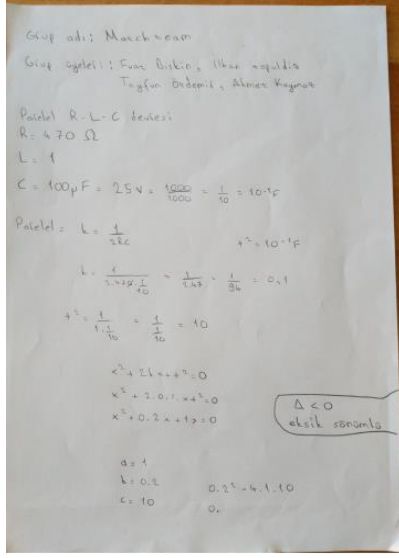 Grup adı: Matchteam
Grup üyeleri: Fırat Bişkin, İlhan
Tayfun Özdemir, Ahmet Kaymaz
Paralel R-L-C devresi
R = 470 Ω
L = 1
C = 100µF = 25V = 1000/1000 = 1/10 = 10⁻¹F
Paralel = k = 1/2RC
+² = 10⁻¹F
k = 1/2.470.1/10 = 1/2.47 = 1/94 = 0,1
+² = 1/1.1/10 = 1/1/10 = 10
x² + 2kx + +² = 0
x² + 2.0,1.x + +² = 0
x² + 0.2x + 10 = 0
Δ < 0
eksik sönümlü
a = 1
b = 0.2
c = 10
0.2² - 4.1.10
0.